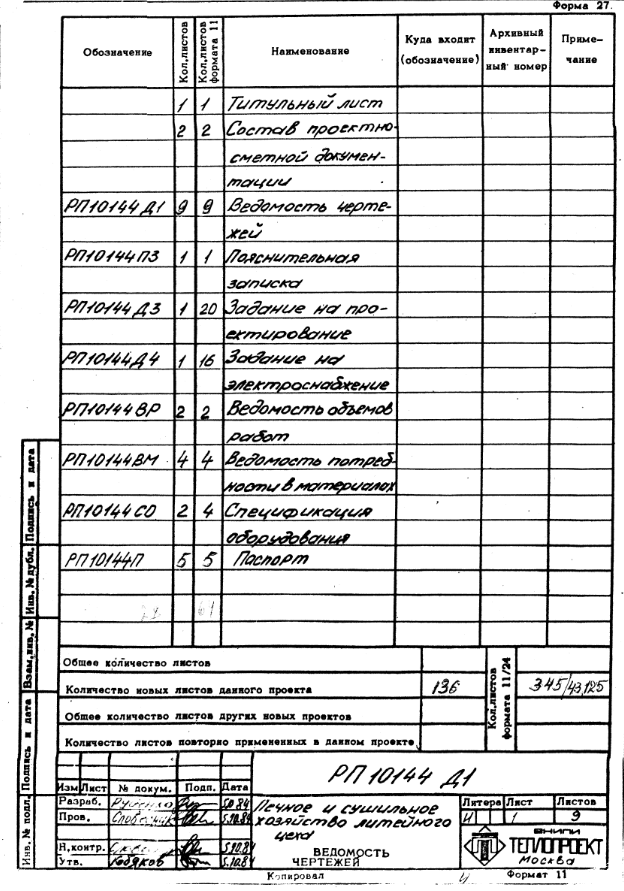 Форма 27.
Обозначение
Кол.листов
Кол.листов формата 11
Наименование
Куда входит (обозначение)
Архивный инвентар-ный номер
Приме-чание
1 1 Титульный лист
2 2 Состав проектно-
сметной докумен-
тации
РП10144 Д1 9 9 Ведомость черте-
жей
РП10144 ПЗ 1 1 Пояснительная
записка
РП10144 Д3 1 20 Задание на про-
ектирование
РП10144 Д4 1 16 Задание на
электроснабжение
РП10144 ВР 2 2 Ведомость объемов
работ
РП10144 ВМ 4 4 Ведомость потреб-
ности в материалах
РП10144 СО 2 4 Спецификация
оборудования
РП10144П 5 5 Паспорт
61
Общее количество листов
Количество новых листов данного проекта 136
Кол.листов формата 11/24
345/43,125
Общее количество листов других новых проектов
Количество листов повторно примененных в данном проекте
РП 10144 Д1
Изм Лист № докум. Подп. Дата
Разраб.
Пров.
Н.контр.
Утв.
Печное и сушильное
хозяйство литейного
цеха
ВЕДОМОСТЬ
ЧЕРТЕЖЕЙ
Литера Лист Листов
И 1 9
ВНИПИ
ТЕПЛОПРОЕКТ
Москва
Копировал
Формат 11
Инв. № подл.
Подпись и дата
Взам.инв. №
Инв. № дубл.
Подпись и дата